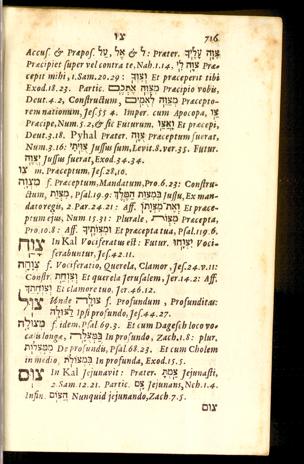 צו 716
Accus. & Præpos. על, אל & ל: Prater. צִוָּה עָלֶיךָ
Præcipiet super vel contra te, Nah.1.14. צִוָּה לִי Præ-
cepit mihi, 1.Sam.20.29: וְצִוְּךָ Et præceperit tibi
Exod.18.23. Partic. מְצַוֶּה אֶתְכֶם Præcipio vobis,
Deut.4.2, Constructum, מְצַוֵּה לְאֻמִּים Præcepto-
rem nationum, Jes.55 4. Imper. cum Apocopa, צַו
Præcipe, Num.5.2. & sic Futurum. וַאֲצַו Et præcepi,
Deut.3.18. Pyhal Prater. צֻוָּה Præceptum fuerat,
Num.3.16: צֻוֵּיתִי Jussus sum, Levit.8.ver.35. Futur.
יְצֻוֶּה Jussus fuerat, Exod.34.34.
צַו m. Præceptum, Jes.28,10.
מִצְוָה f. Præceptum, Mandatum, Pro.6.23: Constru-
ctum, מִצְוַת, Psal.19.9: בְּמִצְוַת הַמֶּלֶךְ Jussu, Ex man-
dato regis, 2.Par.24.21: Aff. וְאֶת־מִצְוָתוֹ Et præce-
ptum ejus, Num 15.31: Plurale, מִצְוֹת Præcepta,
Pro.10.8: Aff. וּמִצְוֹתֶיךָ Et præcepta tua, Psal.119.6.
צוח In Kal Vociferatus est: Futur. יִצְוָחוּ Voci-
ferabuntur, Jes.42.11.
צְוָחָה f. Vociferatio, Querela, Clamor, Jes.24.v.11:
Constr. וְצִוְחַת Et querela Jerusalem, Jer.14.2: Aff.
וְצִוְחָתֵךְ Et clamore tuo, Jer.46.12.
צוּל Inde צוּלָה f. Profundum, Profunditas:
לַצּוּלָה Ipsi profundo, Jes.44.27.
מְצוּלָה f. idem. Psal 69.3. Et cum Dagesch loco vo-
calis longæ, בַּמְּצֻלָּה In profundo, Zach.1.8: plur.
מִמְּצֻלוֹת De profundis, Psal.68.23. Et cum Cholem
in medio, בִמְצוֹלֹת In profunda, Exod.15.5.
צום In Kal Jejunavit: Prater. צַמְתָּ Jejunasti,
2 Sam.12.21. Partic. צָם Jejunans, Neh.1.4.
Infin. הֲצוֹם Nunquid jejunando, Zach.7.5.
צום